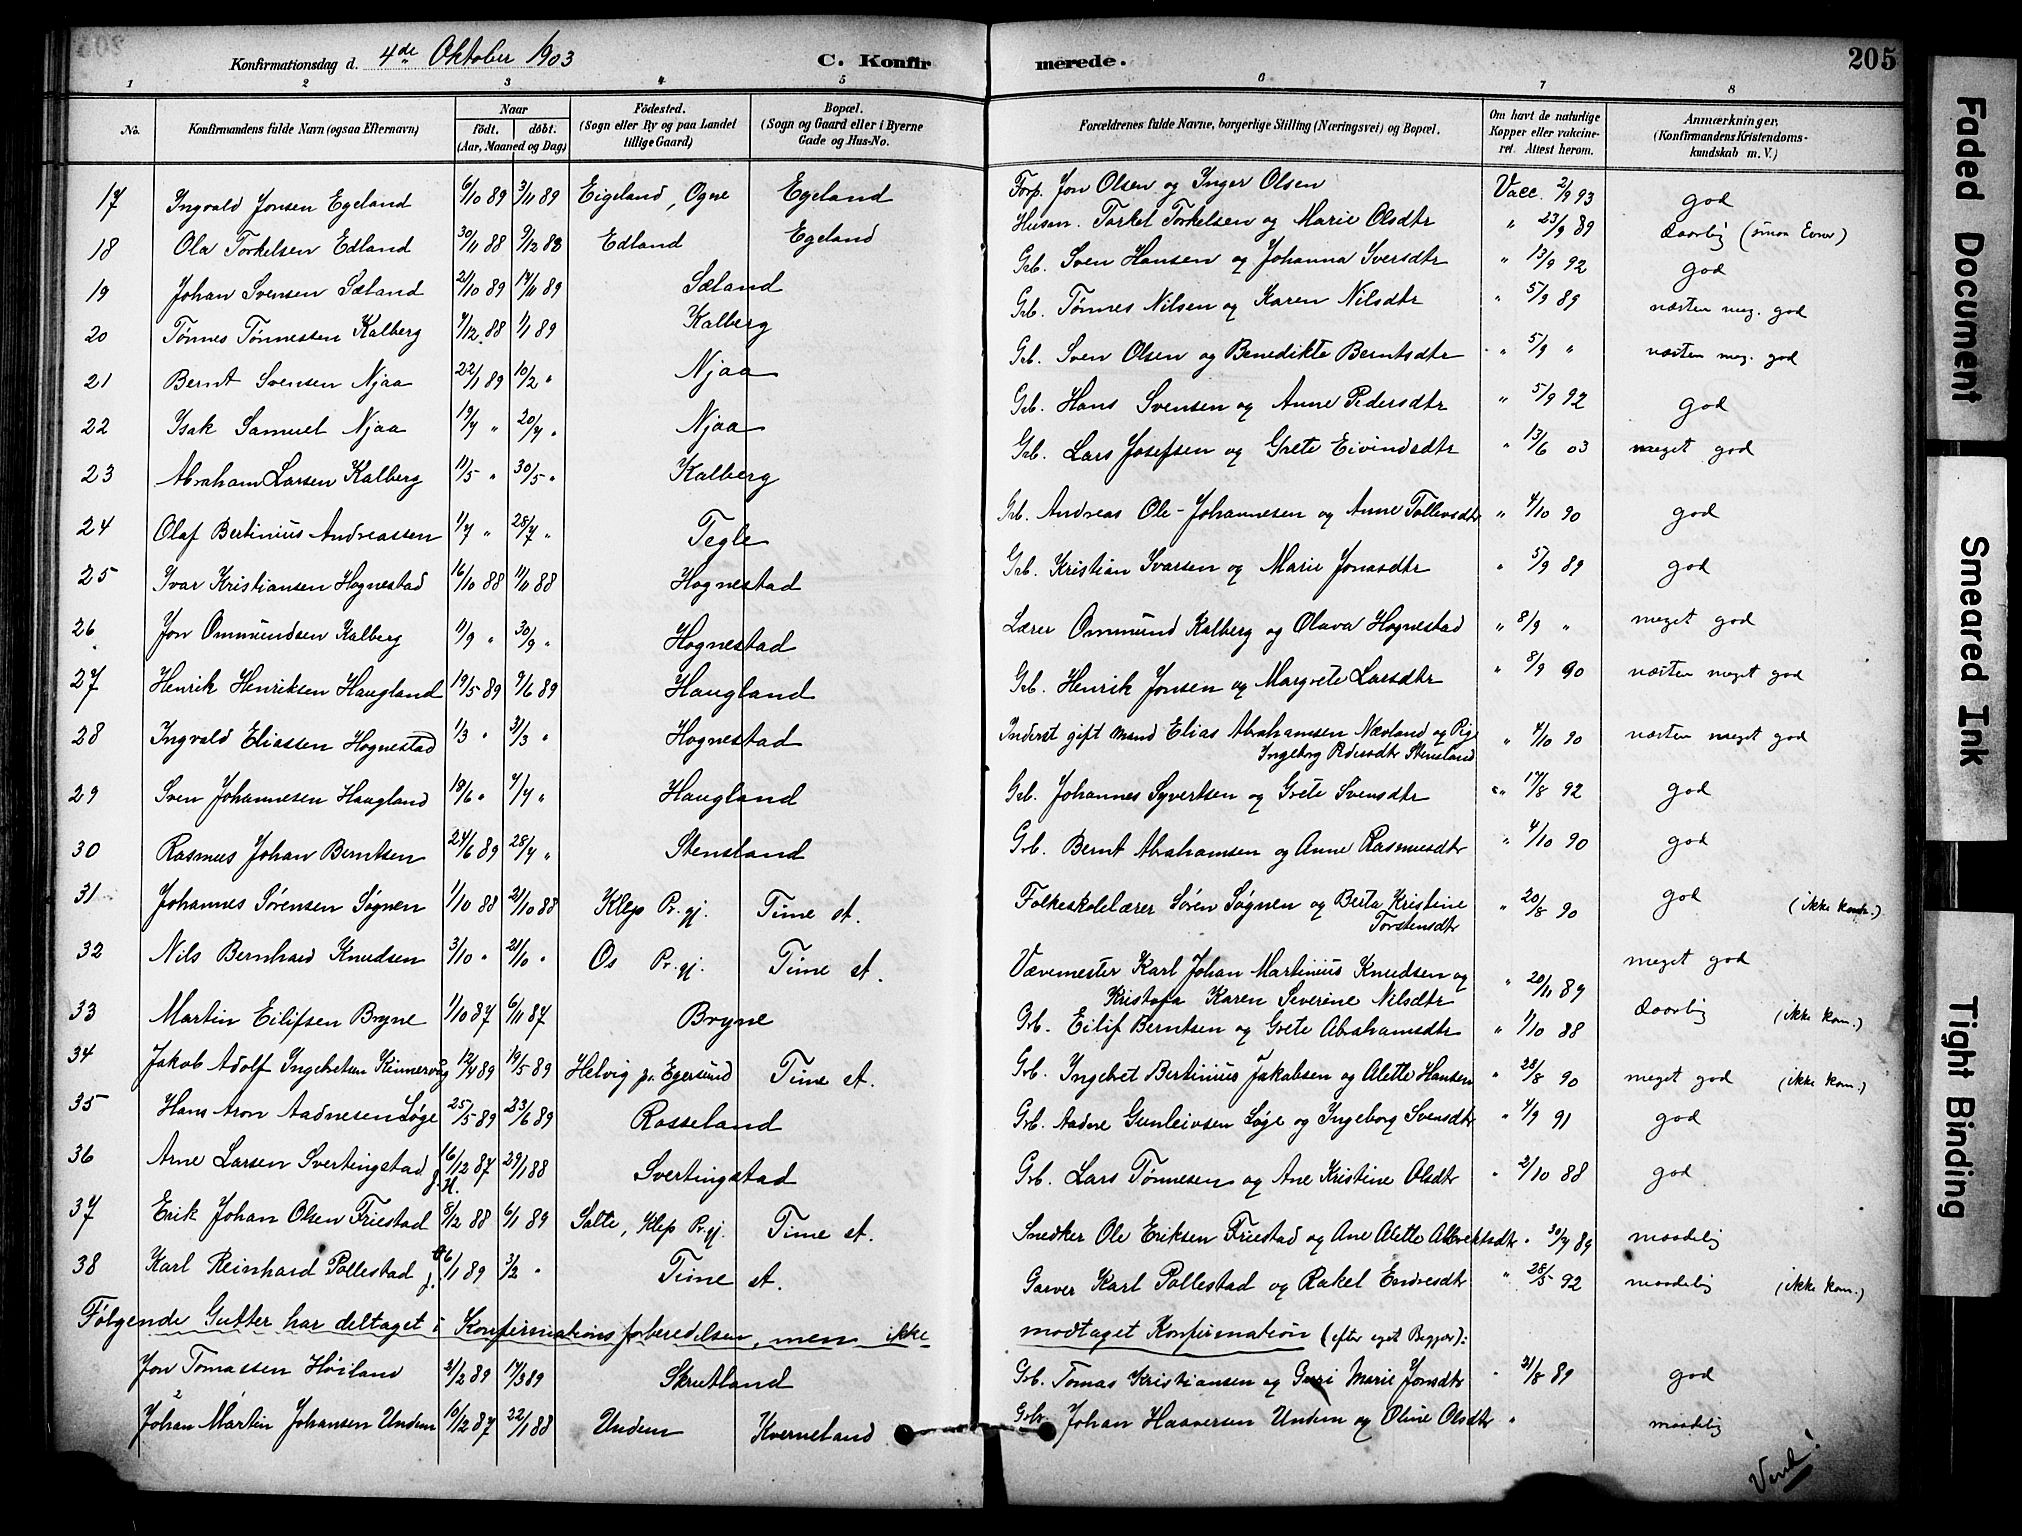 Konfirmationsdag d. 4de Oktober 1903 C. Konfirmerede. 205
1 2 3 4 5 6 7 8
No. Konfirmandens fulde Navn (ogsaa Efternavn) Naar født. døbt. (Aar, Maaned og Dag) Fødested. (Sogn eller By og paa Landet tillige Gaard) Bopæl. (Sogn og Gaard eller i Byerne Gade og Hus-No. Forældrenes fulde Navne, borgerlige Stilling (Næringsvei) og Bopæl. Om havt de naturlige Kopper eller vakcineret. Attest herom. Anmærkninger, (Konfirmandens Kristendomskundskab m. V.)
17 Ingvald Jonsen Egeland 6/10 89 3/11 89 Eigeland, Ogne Egeland Forp. Jon Olsen og Inger Olsen Vacc. 2/9 93 god
18 Ola Torkelsen Edland 30/11 88 9/12 88 Edland Egeland Husm. Torkel Torkelsen og Marie Olsdtr " 23/9 89 daarlig (smaa Evner)
19 Johan Svensen Sæland 21/10 89 17/11 89 Sæland Grb. Sven Hansen og Johanna Sversdtr " 13/9 92 god
20 Tønnes Tønnessen Kalberg 7/12 88 1/1 89 Kalberg Grb. Tønnes Nilsen og Karen Nilsdtr " 5/9 89 næsten meg. god
21 Bernt Svensen Njaa 22/1 89 10/2 " Njaa Grb. Sven Olsen og Benedikte Berntsdtr " 5/9 " næsten meg. god
22 Isak Samuel Njaa 19/4 " 20/4 " Njaa Grb. Hans Svensen og Anne Pedersdtr " 5/9 92 god
23 Abraham Larsen Kalberg 11/5 " 30/5 " Kalberg Grb. Lars Josefsen og Grete Eivindsdtr " 13/6 03 meget god
24 Olaf Bertinius Andreassen 1/7 " 28/7 " Tegle Grb. Andreas Ole-Johannesen og Anne Tollevsdtr " 4/10 90 god
25 Ivar Kristiansen Hognestad 16/10 88 11/11 88 Hognestad Grb. Kristian Ivarsen og Marie Jonasdtr " 5/9 89 god
26 Jon Ommundsen Kalberg 11/9 " 30/9 " Hognestad Lærer Ommund Kalberg og Olava Hognestad " 8/9 " meget god
27 Henrik Henriksen Haugland 19/5 89 9/6 89 Haugland Grb. Henrik Jonsen og Margrete Larsdtr " 8/9 90 næsten meget god
28 Ingvald Eliassen Hognestad 1/3 " 31/3 " Hognestad Inderst gift Mand Elias Abrahamsen Nærland og Pige " 4/10 90 næsten meget god
Ingeborg Pedersdtr Stensland
29 Sven Johannesen Haugland 18/6 " 7/7 " Haugland Grb. Johannes Syvertsen og Grete Svensdtr " 17/8 92 god
30 Rasmus Johan Berntsen 24/6 89 28/7 " Stensland Grb. Bernt Abrahamsen og Anne Rasmusdtr " 4/10 90 god
31 Johannes Sørensen Søgnen 1/10 88 21/10 88 Klep Pr.gj. Time st. Folkeskolelærer Søren Søgnen og Berta Kristine " 20/8 90 god (ikke kom.)
Torstensdtr
32 Nils Bernhard Knudsen 3/10 " 21/10 " Os Pr.gj. Time st. Vævemester Karl Johan Martinius Knudsen og " 20/11 89 meget god
Kristofa Karen Severine Nilsdtr
33 Martin Eilifsen Bryne 1/10 87 6/11 87 Bryne Grb. Eilif Berntsen og Grete Abrahamsdtr " 9/10 88 daarlig (ikke kom.)
34 Jakob Adolf Ingebretsen Kinnervåg 12/4 89 19/5 89 Helvig pr. Egersund Time st. Grb. Ingebret Bertinius Jakobsen og Alette Hansen " 28/8 90 meget god (ikke kom.)
35 Hans Aron Aadnesen Løge 25/5 89 23/6 89 Rosseland Grb. Aadne Gunleivsen Løge og Ingeborg Svensdtr " 4/9 91 god
36 Arne Larsen Svertingstad 16/12 87 29/1 88 Svertingstad Grb. Lars Tønnesen og Ane Kristine Olsdtr " 2/10 88 god
37 Erik Johan Olsen Friestad 8/12 88 6/1 89 Salte, Klep Pr.gj. Time st. Snedker Ole Eriksen Friestad og Ane Alette Albrektsdtr " 30/7 89 maadelig
38 Karl Reinhard Pollestad 6/1 89 3/2 " Time st. Garver Karl Pollestad og Rakel Endresdtr " 28/5 92 maadelig (ikke kom.)
Følgende Gutter har deltaget i Konfirmationsforberedelsen, men ikke modtaget Konfirmation (efter eget Begjær):
Jon Tomassen Høiland 3/2 89 17/3 89 Skrutland Grb. Tomas Kristiansen og Guri Marie Jonsdtr " 31/8 89 god
Johan Martin Johansen Undem 10/12 87 22/1 88 Undem Kverneland Grb. Johan Haaversen Undem og Oline Olsdtr " maadelig
Vend!
Faded Document
Smeared Ink
Tight Binding